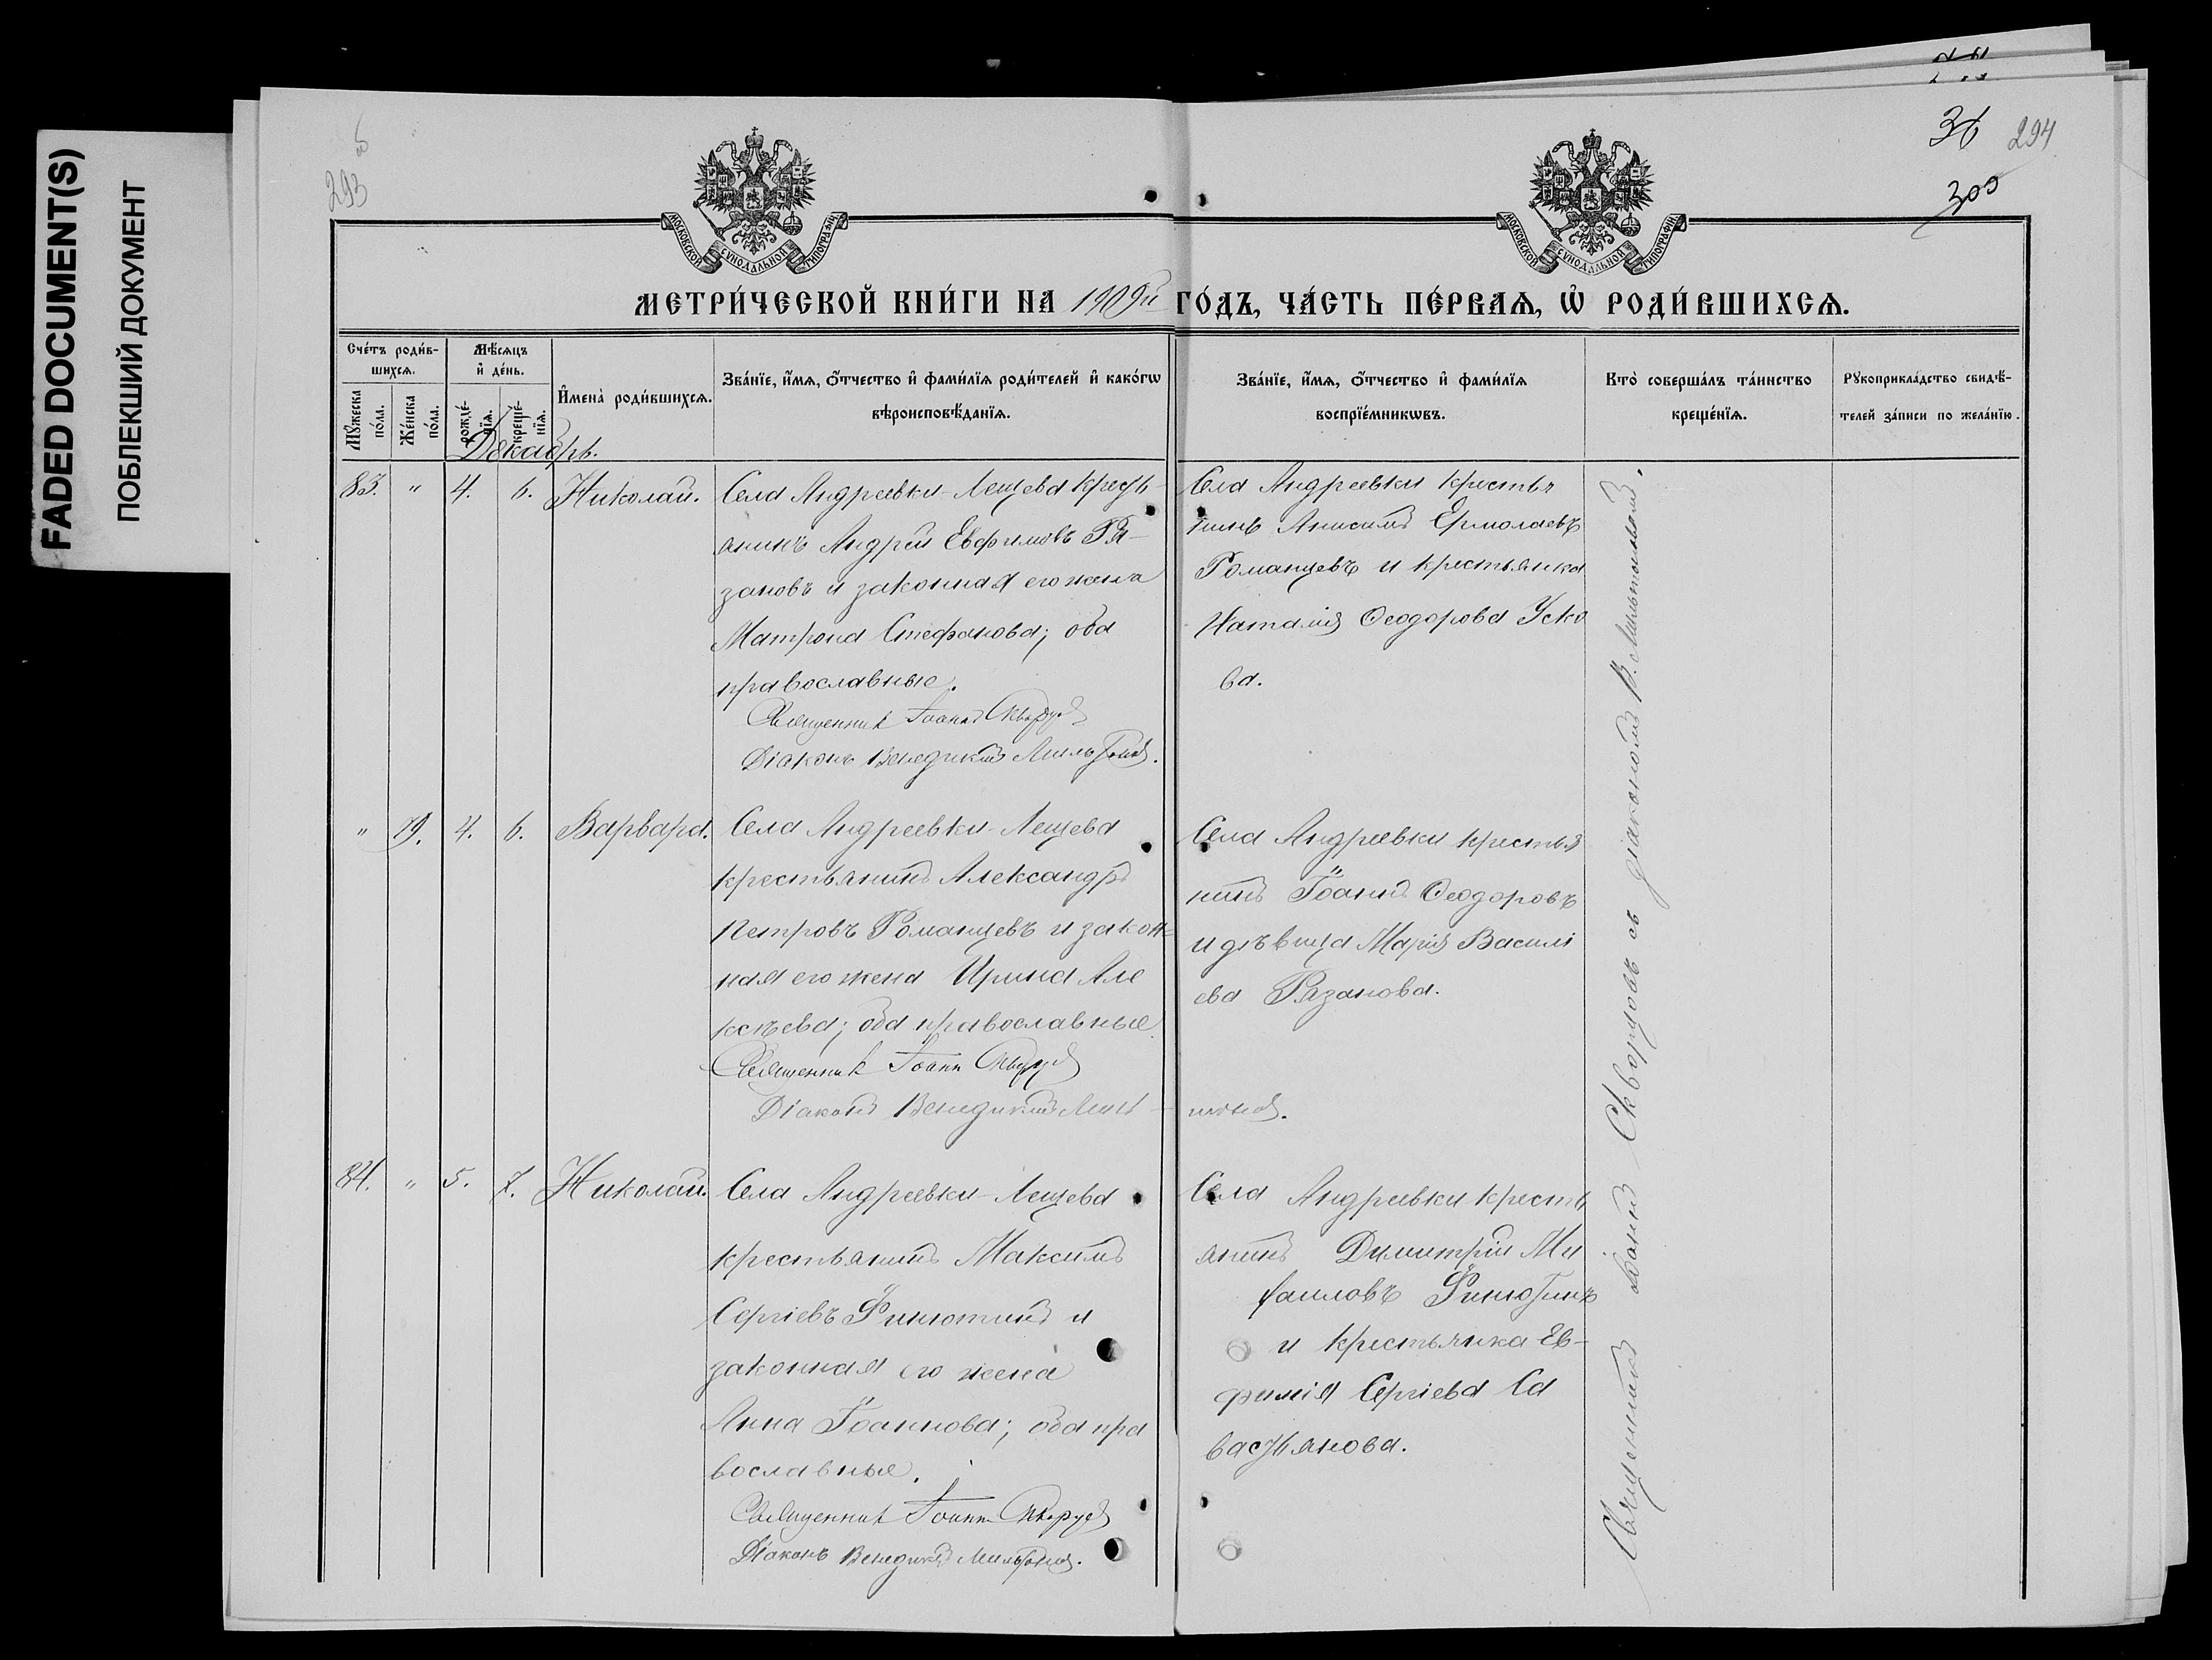 FADED DOCUMENT(S)
ПОБЛЕКШИЙ ДОКУМЕНТ
293
об
36 294
300
МОСКОВСКОЙ СУНОДАЛЬНОЙ ТИПОГРАФІИ
МОСКОВСКОЙ СУНОДАЛЬНОЙ ТИПОГРАФІИ
МЕТРИ́ЧЕСКОЙ КНИ́ГИ НА 1909й ГО́ДЪ, ЧА́СТЬ ПЕ́РВАЯ, Ѡ РОДИ́ВШИХСЯ.
Сче́тъ роди́в-
шихся.
Мѹ́жеска
по́ла.
Же́нска
по́ла.
Мѣ́сяцъ
и҆ де́нь.
рожде́-
нїя.
креще́-
нїя.
И҆мена̀ роди́вшихся.
Зва́нїе, и҆́мя, о҆́тчество и҆ фами́лїя роди́телей и҆ како́гѡ
вѣроисповѣ́данїя.
Зва́нїе, и҆́мя, о҆́тчество и҆ фами́лїя
воспрїе́мникѡвъ.
Кто̀ соверша́лъ та́инство
креще́нїя.
Рѹкоприкла́дство свидѣ́-
телей за́писи по жела́нїю.
Декабрь.
83. " 4. 6. Николай.
Села Андреевки-Лещева кресть-
янинъ Андрей Евфимовъ Ря-
зановъ и законная его жена
Матрона Стефанова; оба
православные.
Священник Іоанн Скворцов
Діаконъ Венедиктъ Мильтонов.
Села Андреевки крестья
нинъ Анисимъ Ермолаевъ
Романцевъ и крестьянка
Наталія Ѳеодорова Уско
ва.
" 79. 4. 6. Варвара.
Села Андреевки-Лещева
крестьянинъ Александръ
Петровъ Романцевъ и закон-
ная его жена Ирина Але
ксѣева; оба православные
Священник Іоанн Скворцов
Діаконъ Венедиктъ Миль-
тонов.
Села Андреевки крестья
нинъ Іоаннъ Ѳеодоровъ
и дѣвица Марія Василі
ева Рязанова.
84. " 5. 7. Николай.
Села Андреевки-Лещева
крестьянинъ Максимъ
Сергіевъ Финютинъ и
законная его жена
Анна Іоаннова; оба пра
вославные.
Священник Іоанн Скворцов
Діаконъ Венедиктъ Мильтонов.
Села Андреевки кресть
янинъ Димитрій Ми
хаиловъ Финютинъ
и крестьянка Ев-
фимія Сергіева Са
вастьянова.
Священникъ Іоаннъ Скворцовъ съ діакономъ В. Мильтоновымъ.